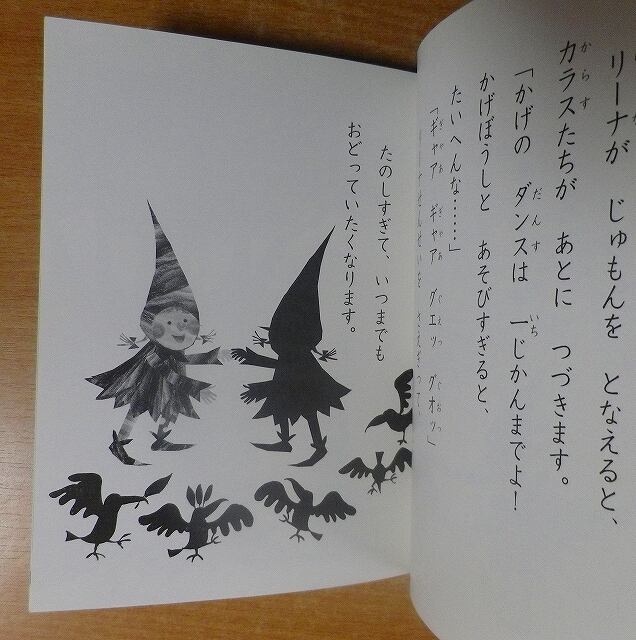 リーナが じゅもんを となえると、
カラスたちが あとに つづきます。
からす
「かげの ダンスは 一じかんまでよ!
だんす
いち
かげぼうしと あそびすぎると、
たいへんな……」
「ギャア ギャア グエッ グオッ」
ぎゃあ
ぎゃあ
ぐえっ
ぐおっ
たのしすぎて、いつまでも
おどっていたくなります。